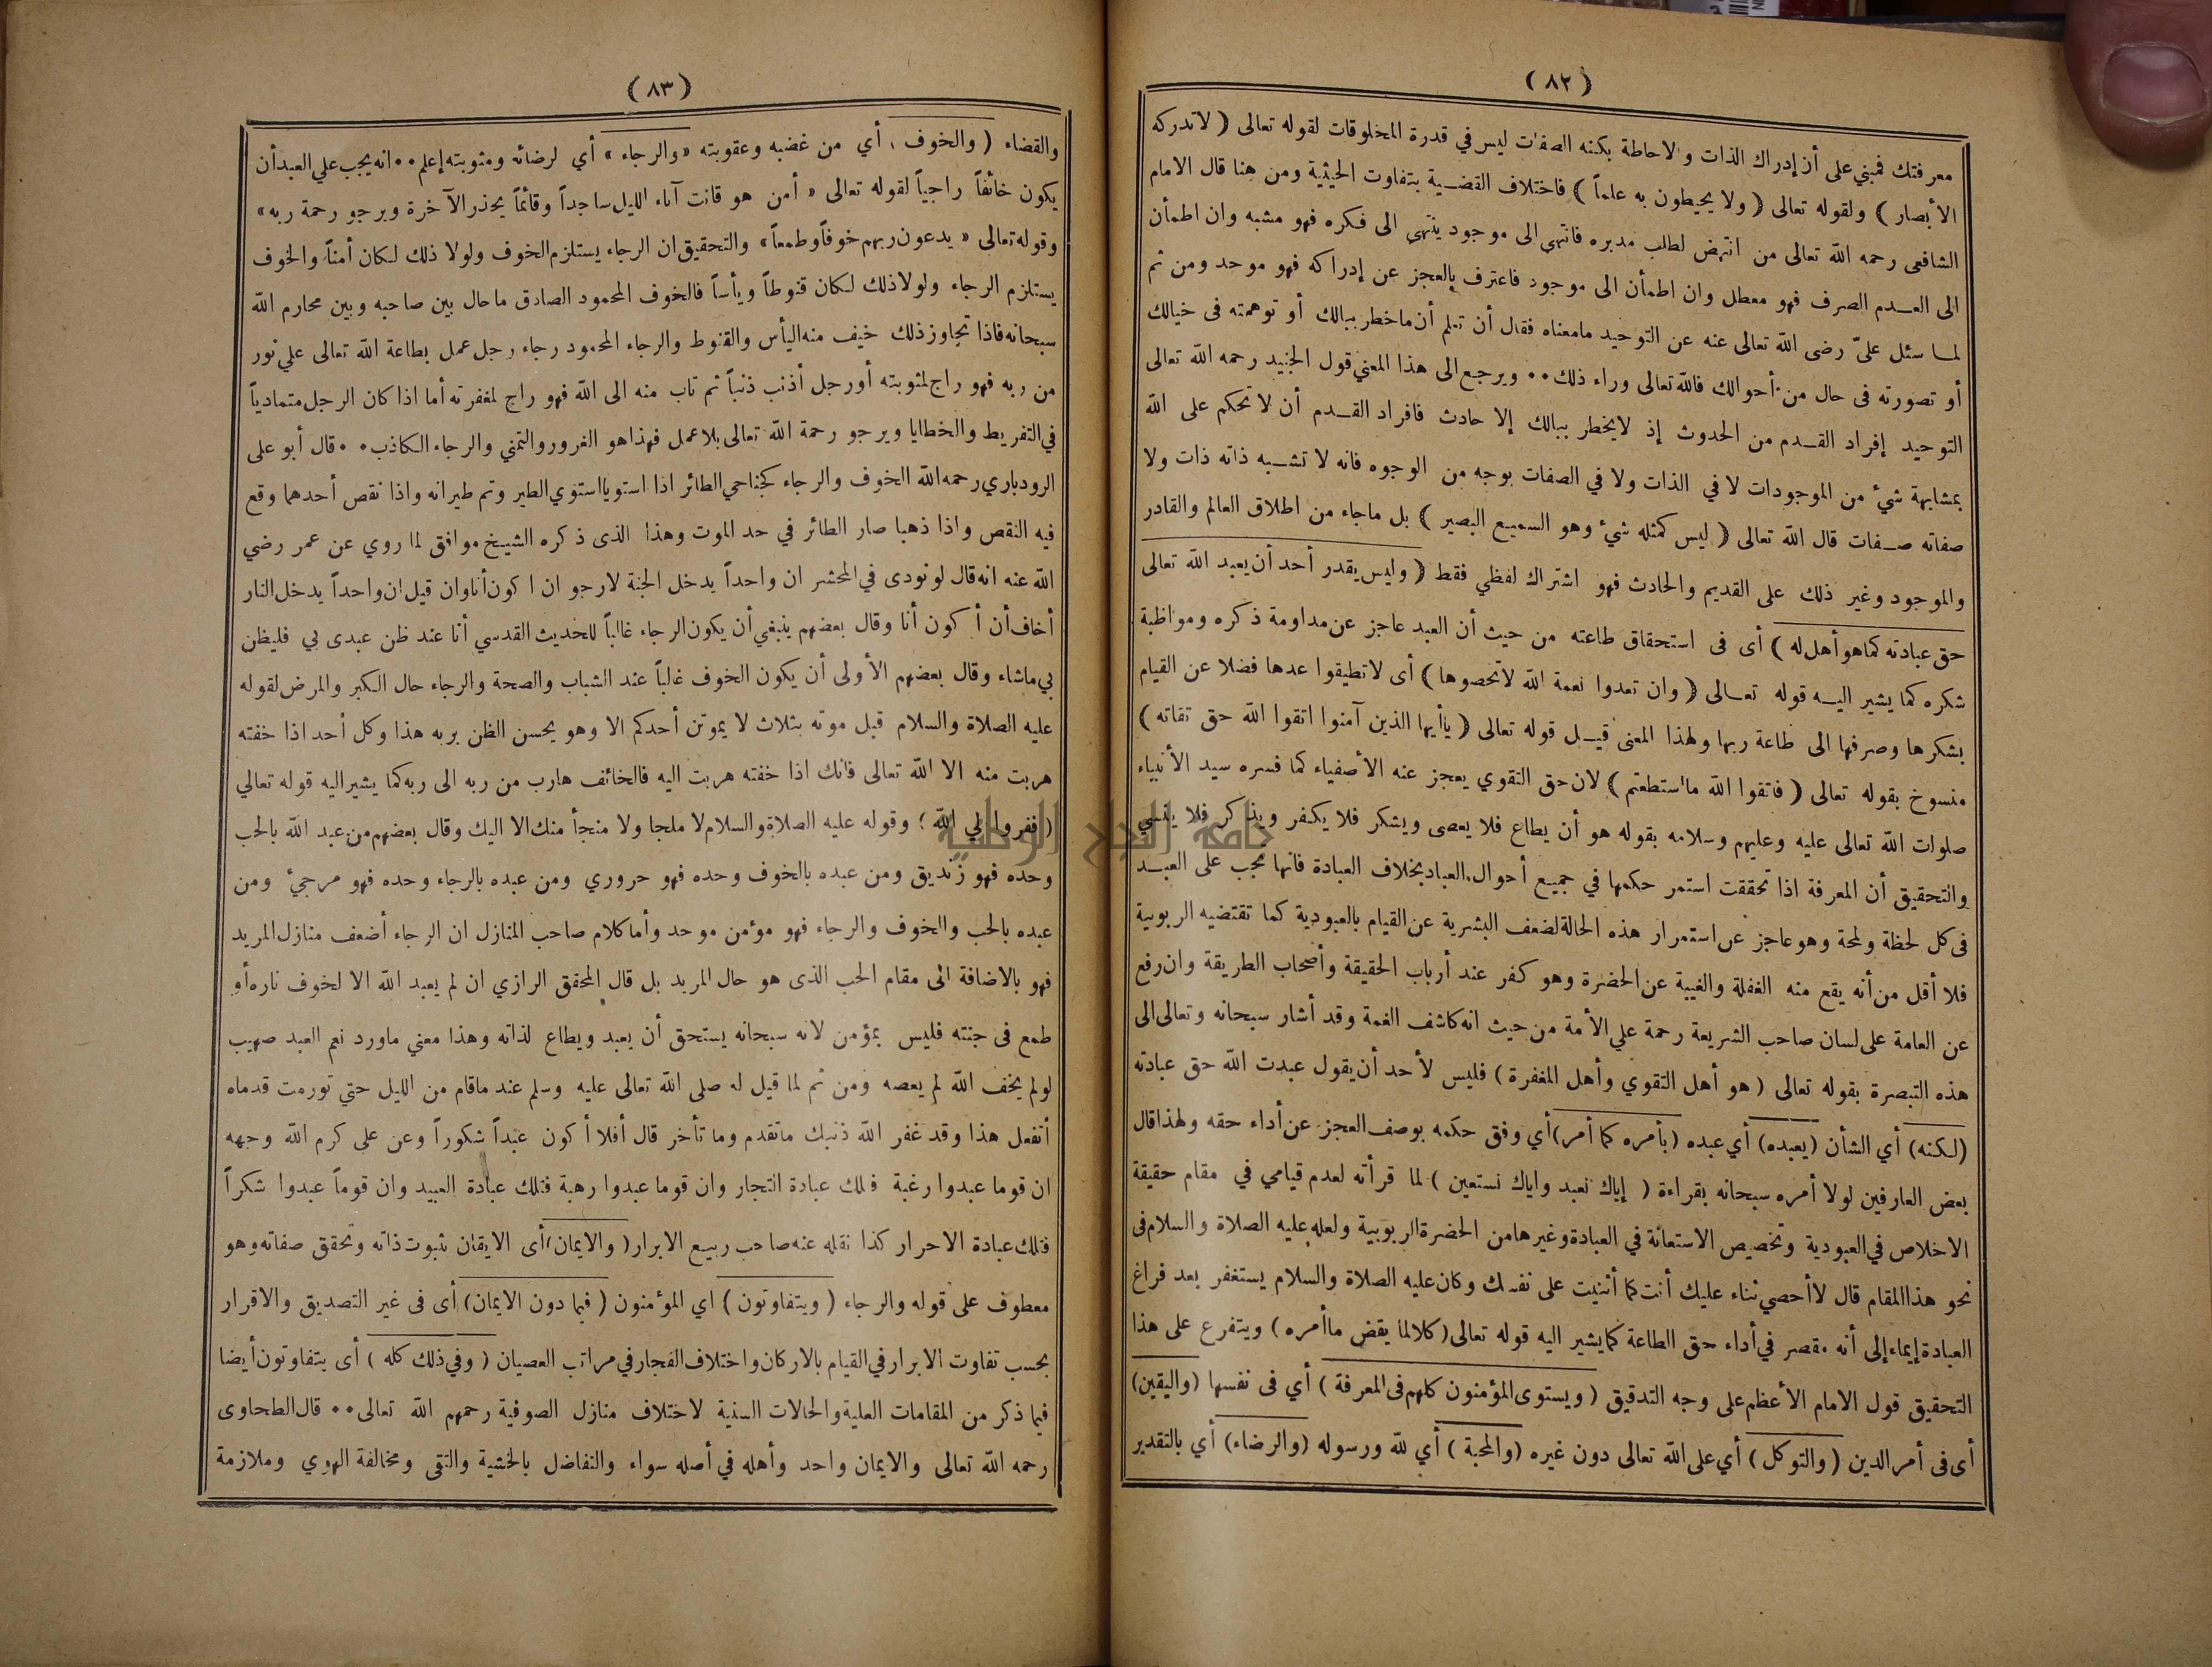 (٨٢)
معرفتك فمبني على أن إدراك الذات والاحاطة بكنه الصفات ليس في قدرة المخلوقات لقوله تعالى (لاتدركه
الأبصار) ولقوله تعالى (ولا يحيطون به علماً) فاختلاف القضية بتفاوت الحيثية ومن هنا قال الامام
الشافعى رحمه الله تعالى من انتهض لطلب مدبره فانتهى الى موجود ينتهى الى فكره فهو مشبه وان اطمأن
الى العدم الصرف فهو معطل وان اطمأن الى موجود فاعترف بالعجز عن إدراكه فهو موحد ومن ثم
لما سئل علىّ رضى الله تعالى عنه عن التوحيد مامعناه فقال أن تعلم أن ماخطر ببالك أو توهمته فى خيالك
أو تصورته فى حال من أحوالك فالله تعالى وراء ذلك ٠٠ ويرجع الى هذا المعني قول الجنيد رحمه الله تعالى
التوحيد إفراد القدم من الحدوث إذ لايخطر ببالك إلا حادث فافراد القدم أن لا تحكم على الله
بمشابهة شيء من الموجودات لا في الذات ولا في الصفات بوجه من الوجوه فانه لا تشبه ذاته ذات ولا
صفاته صفات قال الله تعالى (ليس كمثله شيء وهو السميع البصير) بل ماجاء من اطلاق العالم والقادر
والموجود وغير ذلك على القديم والحادث فهو اشتراك لفظي فقط (وليس يقدر أحد أن يعبد الله تعالى
حق عبادته كما هو أهل له) أى فى استحقاق طاعته من حيث أن العبد عاجز عن مداومة ذكره ومواظبة
شكره كما يشير اليه قوله تعالى (وان تعدوا نعمة الله لاتحصوها) أى لاتطيقوا عدها فضلا عن القيام
بشكرها وصرفها الى طاعة ربها ولهذا المعنى قيل قوله تعالى (ياأيها الذين آمنوا اتقوا الله حق تقاته)
منسوخ بقوله تعالى (فاتقوا الله مااستطعتم) لان حق التقوي يعجز عنه الأصفياء كما فسره سيد الأنبياء
صلوات الله تعالى عليه وعليهم وسلامه بقوله هو أن يطاع فلا يعصى ويشكر فلا يكفر ويذكر فلا ينسي
والتحقيق أن المعرفة اذا تحققت استمر حكمها في جميع أحوال العباد بخلاف العبادة فانها تجب على العبد
فى كل لحظة ولمحة وهو عاجز عن استمرار هذه الحالة لضعف البشرية عن القيام بالعبودية كما تقتضيه الربوبية
فلا أقل من أنه يقع منه الغفلة والغيبة عن الحضرة وهو كفر عند أرباب الحقيقة وأصحاب الطريقة وان رفع
عن العامة على لسان صاحب الشريعة رحمة علي الأمة من حيث انه كاشف الغمة وقد أشار سبحانه وتعالى الى
هذه التبصرة بقوله تعالى (هو أهل التقوي وأهل المغفرة) فليس لأحد أن يقول عبدت الله حق عبادته
(لكنه) أي الشأن (يعبده) أي عبده (بأمره كما أمر) أي وفق حكمه بوصف العجز عن أداء حقه ولهذا قال
بعض العارفين لولا أمره سبحانه بقراءة (إياك نعبد واياك نستعين) لما قرأته لعدم قيامي في مقام حقيقة
الاخلاص في العبودية وتخصيص الاستعانة في العبادة وغيرها من الحضرة الربوبية ولعله عليه الصلاة والسلام فى
نحو هذا المقام قال لاأحصي ثناء عليك أنت كما أثنيت على نفسك وكان عليه الصلاة والسلام يستغفر بعد فراغ
العبادة إيماء إلى أنه مقصر في أداء حق الطاعة كما يشير اليه قوله تعالى (كلا لما يقض ماأمره) ويتفرع على هذا
التحقيق قول الامام الأعظم على وجه التدقيق (ويستوى المؤمنون كلهم فى المعرفة) أي فى نفسها (واليقين)
أى فى أمر الدين (والتوكل) أي على الله تعالى دون غيره (والمحبة) أي لله ورسوله (والرضاء) أي بالتقدير
(٨٣)
والقضاء (والخوف) أي من غضبه وعقوبته «والرجاء» أي لرضائه ومثوبته إعلم ٠٠ انه يجب علي العبد أن
يكون خائفاً راجياً لقوله تعالى «أمن هو قانت آناء الليل ساجداً وقائماً يحذر الآخرة ويرجو رحمة ربه»
وقوله تعالى «يدعون ربهم خوفاً وطمعاً» والتحقيق ان الرجاء يستلزم الخوف ولولا ذلك لكان أمناً والخوف
يستلزم الرجاء ولولا ذلك لكان قنوطاً ويأساً فالخوف المحمود الصادق ماحال بين صاحبه وبين محارم الله
سبحانه فاذا تجاوز ذلك خيف منه اليأس والقنوط والرجاء المحمود رجاء رجل عمل بطاعة الله تعالى علي نور
من ربه فهو راج لمثوبته أو رجل أذنب ذنباً ثم تاب منه الى الله فهو راج لمغفرته أما اذا كان الرجل متمادياً
في التفريط والخطايا ويرجو رحمة الله تعالى بلا عمل فهذا هو الغرور والتمني والرجاء الكاذب ٠٠ قال أبو على
الرودباري رحمه الله الخوف والرجاء كجناحي الطائر اذا استويا استوي الطير وتم طيرانه واذا نقص أحدهما وقع
فيه النقص واذا ذهبا صار الطائر في حد الموت وهذا الذى ذكره الشيخ موافق لما روي عن عمر رضي
الله عنه انه قال لو نودى في المحشر ان واحداً يدخل الجنة لارجو ان اكون أنا وان قيل ان واحداً يدخل النار
أخاف أن أكون أنا وقال بعضهم ينبغي أن يكون الرجاء غالباً للحديث القدسي أنا عند ظن عبدى بي فليظن
بي ماشاء وقال بعضهم الأولى أن يكون الخوف غالباً عند الشباب والصحة والرجاء حال الكبر والمرض لقوله
عليه الصلاة والسلام قبل موته بثلاث لا يموتن أحدكم الا وهو يحسن الظن بربه هذا وكل أحد اذا خفته
هربت منه الا الله تعالى فانك اذا خفته هربت اليه فالخائف هارب من ربه الى ربه كما يشير اليه قوله تعالي
(ففروا إلي الله) وقوله عليه الصلاة والسلام لا ملجا ولا منجأ منك الا اليك وقال بعضهم من عبد الله بالحب
وحده فهو زنديق ومن عبده بالخوف وحده فهو حروري ومن عبده بالرجاء وحده فهو مرجيء ومن
عبده بالحب والخوف والرجاء فهو موءمن موحد وأما كلام صاحب المنازل ان الرجاء أضعف منازل المريد
فهو بالاضافة الى مقام الحب الذى هو حال المريد بل قال المحقق الرازي ان لم يعبد الله الا لخوف ناره أو
طمع فى جنته فليس بمؤمن لانه سبحانه يستحق أن يعبد ويطاع لذاته وهذا معني ماورد نعم العبد صهيب
لو لم يخف الله لم يعصه ومن ثم لما قيل له صلى الله تعالى عليه وسلم عند ماقام من الليل حتي تورمت قدماه
أتفعل هذا وقد غفر الله ذنبك ماتقدم وما تأخر قال أفلا أكون عبداً شكوراً وعن على كرم الله وجهه
ان قوما عبدوا رغبة فتلك عبادة التجار وان قوما عبدوا رهبة فتلك عبادة العبيد وان قوماً عبدوا شكراً
فتلك عبادة الاحرار كذا نقله عنه صاحب ربيع الابرار (والايمان) أى الايقان بثبوت ذاته وتحقق صفاته وهو
معطوف على قوله والرجاء (ويتفاوتون) اي الموءمنون (فيما دون الايمان) أى فى غير التصديق والاقرار
بحسب تفاوت الابرار في القيام بالاركان واختلاف الفجار في مراتب العصيان (وفي ذلك كله) أى يتفاوتون أيضا
فيما ذكر من المقامات العلية والحالات السنية لاختلاف منازل الصوفية رحمهم الله تعالى ٠٠ قال الطحاوى
رحمه الله تعالى والايمان واحد وأهله في أصله سواء والتفاضل بالخشية والتقى ومخالفة الهوي وملازمة
جامعة النجاح الوطنية